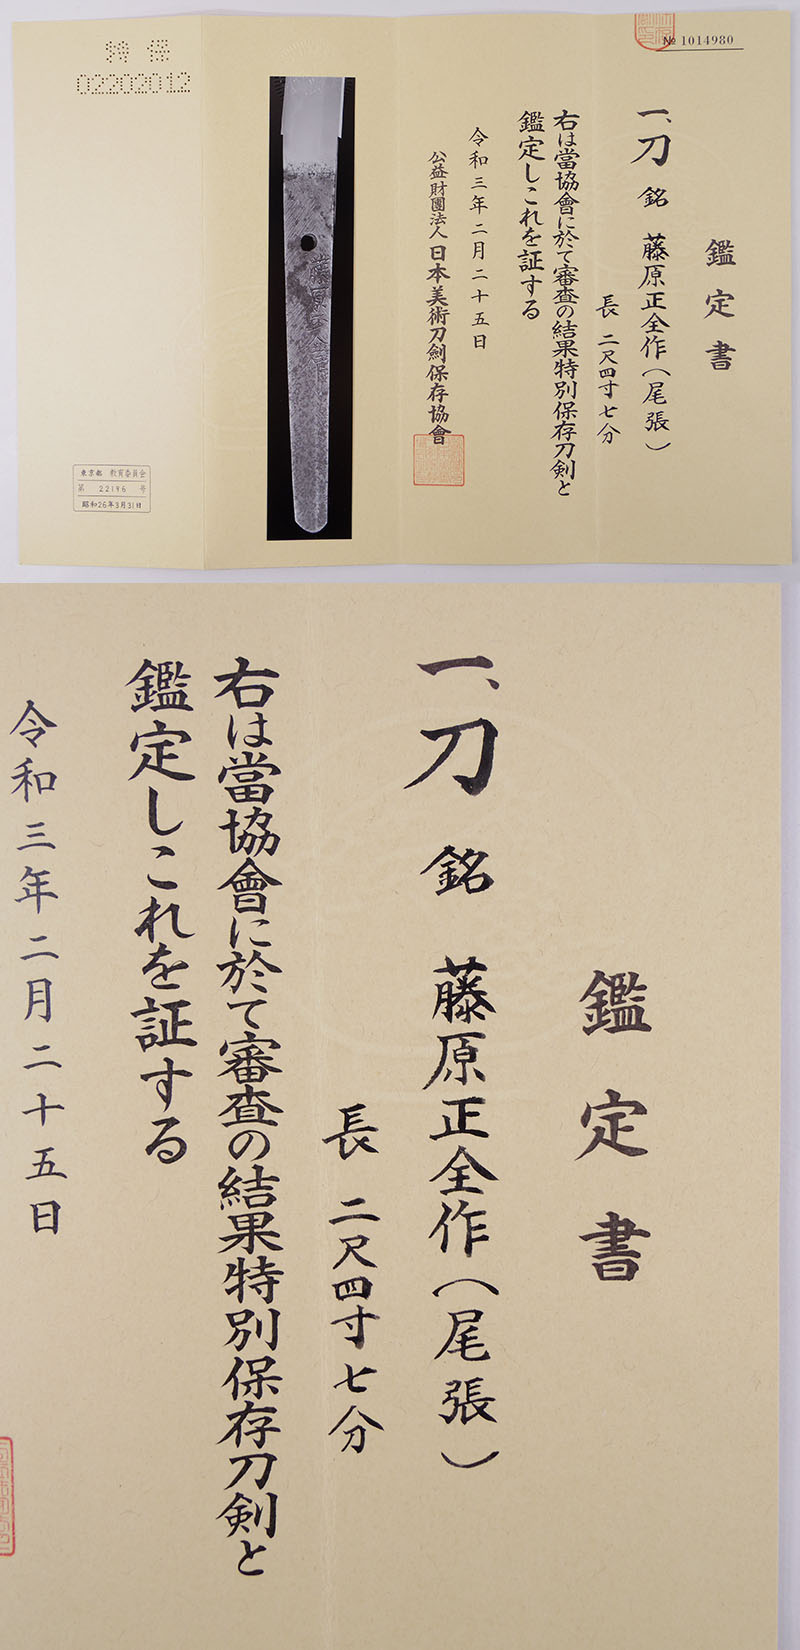 № 1014980
鑑定書
一、刀 銘 藤原正全作(尾張)
長 二尺四寸七分
右は當協會に於て審査の結果特別保存刀剣と
鑑定しこれを証する
令和三年二月二十五日
公益財團法人日本美術刀劍保存協會
藤原
特保
02202012
東京都 教育委員会
第 22196 号
昭和26年3月31日
鑑定書
一、刀 銘 藤原正全作(尾張)
長 二尺四寸七分
右は當協會に於て審査の結果特別保存刀剣と
鑑定しこれを証する
令和三年二月二十五日